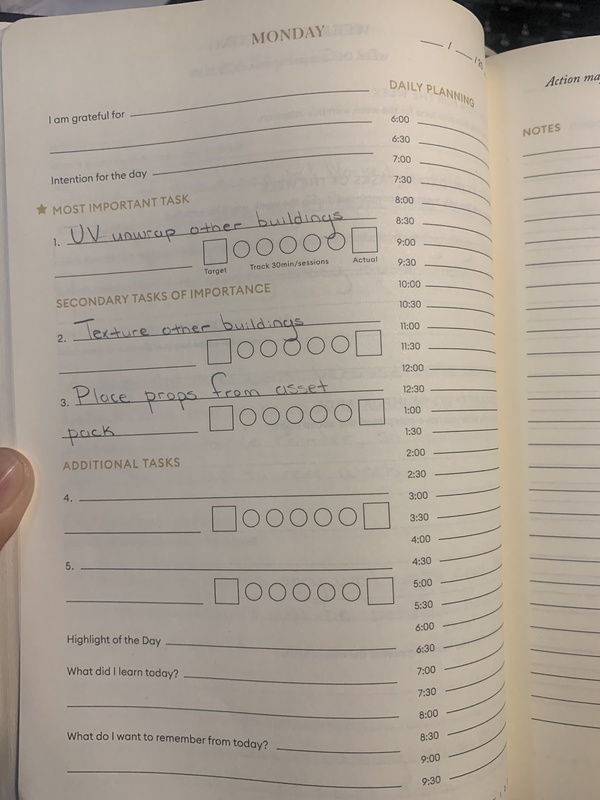 MONDAY
I am grateful for
Intention for the day
MOST IMPORTANT TASK
1. UV unwrap other buildings
Target Track 30min/sessions Actual
SECONDARY TASKS OF IMPORTANCE
2. Texture other buildings
3. Place props from asset
pack
ADDITIONAL TASKS
4.
5.
Highlight of the Day
What did I learn today?
What do I want to remember from today?
DAILY PLANNING
6:00
6:30
7:00
7:30
8:00
8:30
9:00
9:30
10:00
10:30
11:00
11:30
12:00
12:30
1:00
1:30
2:00
2:30
3:00
3:30
4:00
4:30
5:00
5:30
6:00
6:30
7:00
7:30
8:00
8:30
9:00
9:30
Action
NOTES